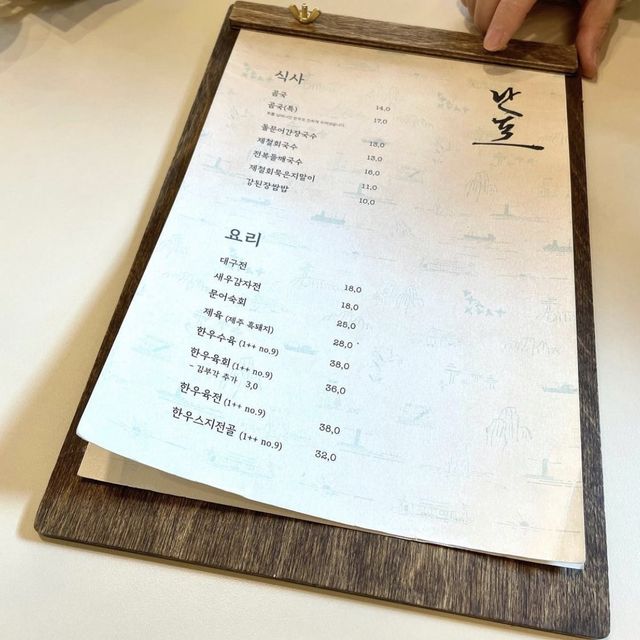 난포
식사
곰국 14,0
곰국(특) 17,0
돌문어간장국수 13,0
제철회국수 13,0
전복들깨국수 16,0
제철회묵은지말이 11,0
강된장쌈밥 10,0
요리
대구전 18,0
새우감자전 18,0
문어숙회 25,0
제육 (제주 흑돼지) 28,0
한우수육 (1++ no.9) 38,0
한우육회 (1++ no.9) 36,0
- 김부각 추가 3,0
한우육전 (1++ no.9) 38,0
한우스지전골 (1++ no.9) 32,0